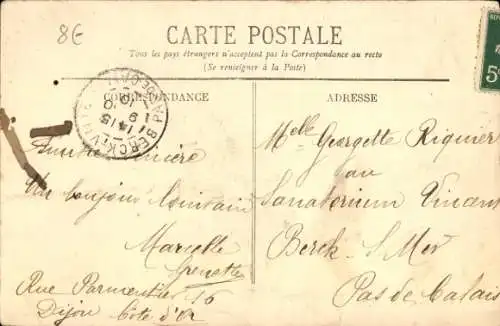 8€
CARTE POSTALE
Tous les pays étrangers n'acceptent pas la Correspondance au recto
(Se renseigner à la Poste)
CORRESPONDANCE
ADRESSE
Un bonjour lointain
Marcelle
Grenette
Rue Parmentier 16
Dijon Côte d'Or
Melle Georgette Riquier
au
Sanatorium Vincent
Berck. S. Mer
Pas de Calais
5